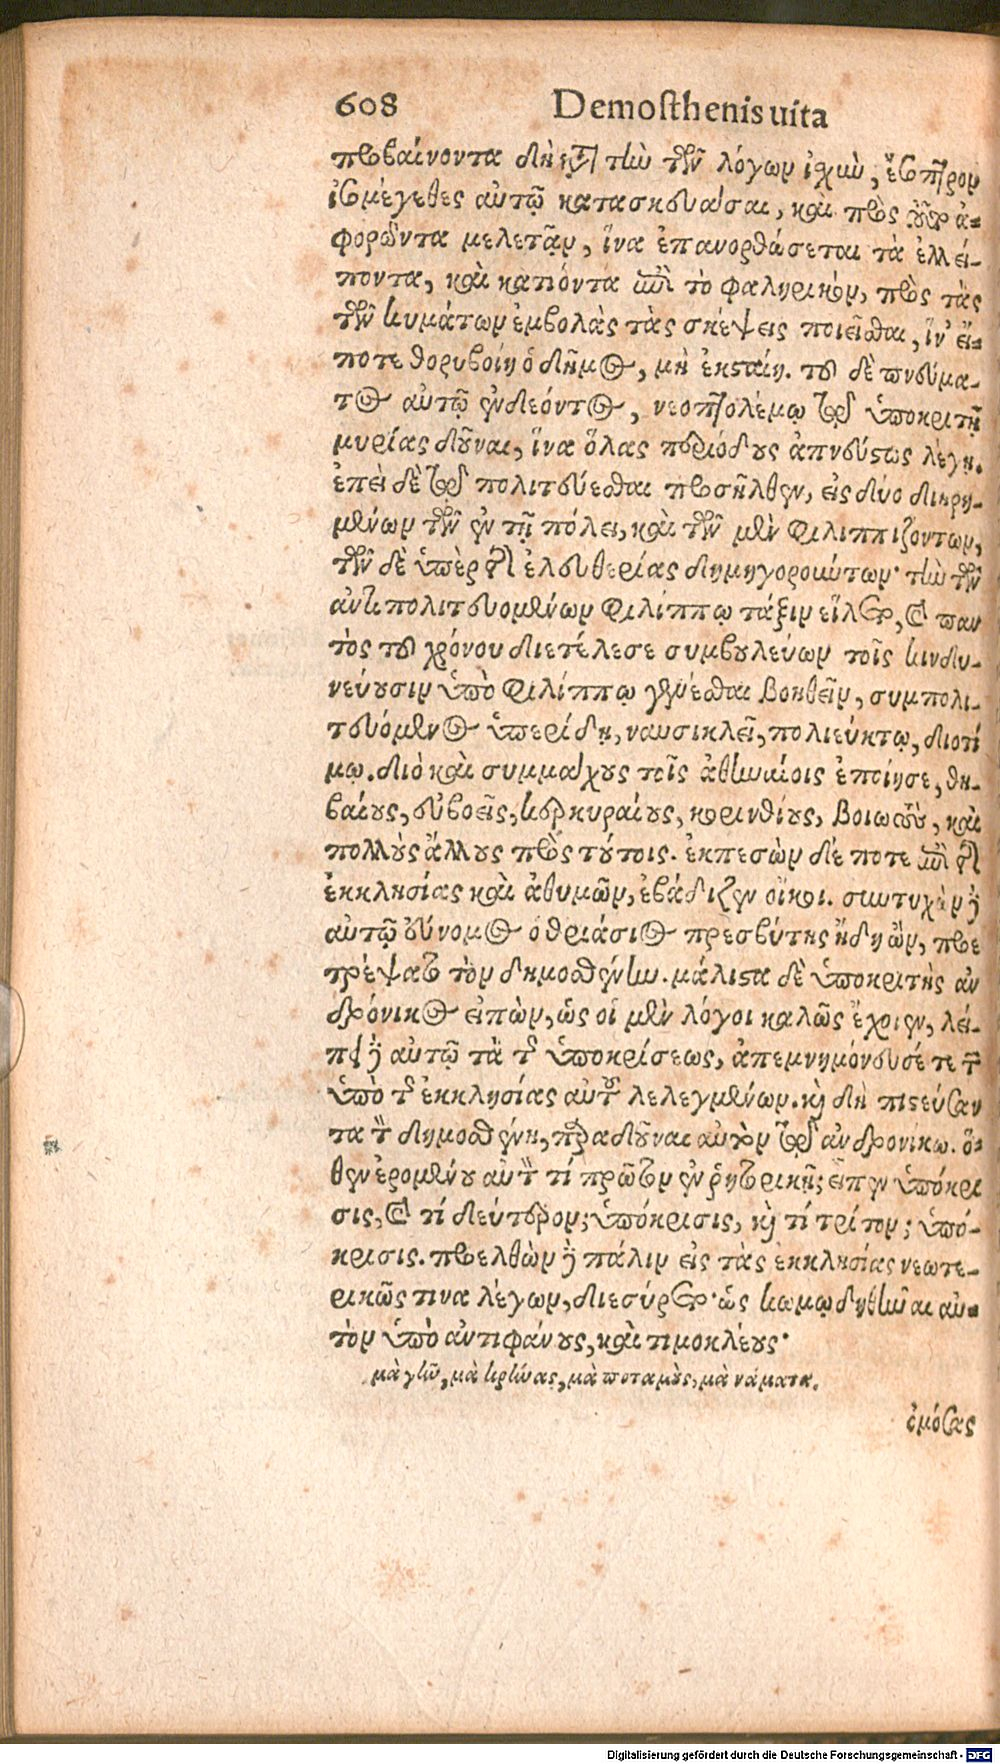 608 Demosthenis uita
προβαίνοντα διηρτῆσθαι τὴν τῶν λόγων ἰχὺν, ἔσοπτρον
ἰσομέγεθες αὐτῷ κατασκευάσαι, καὶ πρὸς τοῦτο ἀ-
φορῶντα μελετᾷν, ἵνα ἐπανορθώσεται τὰ ἐλλεί-
ποντα, καὶ κατιόντα ἐπὶ τὸ φαληρικὸν, πρὸς τὰς
τῶν κυμάτων ἐμβολὰς τὰς σκέψεις ποιεῖσθαι, ἵν' εἴ-
ποτε θορυβοίη ὁ δῆμος, μὴ ἐκσταίη. τοῦ δὲ πνεύμα-
τος αὐτῷ ἐνδεόντος, νεοπτολέμῳ τῷ ὑποκριτῇ
μυρίας δοῦναι, ἵνα ὅλας περιόδους ἀπνεύστως λέγῃ.
ἐπεὶ δὲ τῷ πολιτεύεσθαι προσῆλθεν, εἰς δύο διῃρη-
μένων τῶν ἐν τῇ πόλει, καὶ τῶν μὲν φιλιππιζοντων,
τῶν δὲ ὑπὲρ τῆς ἐλευθερίας δημηγορούντων· τὴν τῶν
ἀντιπολιτευομένων φιλίππῳ τάξιν εἵλετο, καὶ παν
τὸς τοῦ χρόνου διετέλεσε συμβουλεύων τοῖς κινδυ-
νεύουσιν ὑπὸ φιλίππῳ γενέσθαι βοηθεῖν, συμπολι-
τευόμενος ὑπερίδῃ, ναυσικλεῖ, πολιεύκτῳ, διοτί
μῳ. διὸ καὶ συμμάχους τοῖς ἀθηναίοις ἐποίησε, θη-
βαίους, εὐβοεῖς, κερκυραίους, κορινθίους, βοιωτοὺς, καὶ
πολλοὺς ἄλλους πρὸς τούτοις. ἐκπεσὼν δέ ποτε ἐπὶ τῆς
ἐκκλησίας καὶ ἀθυμῶν, ἐβάδιζεν οἴκοι. συντυχὼν δὲ
αὐτῷ εὔνομος ὁ θριάσιος πρεσβύτης ἤδη ὢν, προε
τρέψατο τὸν δημοσθένην. μάλιστα δὲ ὑποκριτὴς ἀν
δρόνικος εἰπὼν, ὡς οἱ μὲν λόγοι καλῶς ἔχοιεν, λεί-
πει δὲ αὐτῷ τὰ τῆς ὑποκρίσεως, ἀπεμνημόνευσέ τε τῶν
ὑπὸ τῆς ἐκκλησίας αὐτοῦ λελεγμένων. καὶ δὴ πιστεύσαν
τα τὸν δημοσθένη, παραδοῦναι αὐτὸν τῷ ἀνδρονίκῳ. ὅ-
θεν ἐρομένου αὐτὸν τί πρῶτον ἐν ῥητορικῇ; εἶπεν ὑπόκρι
σις, καὶ τί δεύτερον; ὑπόκρισις, καὶ τί τρίτον; ὑπό-
κρισις. προελθὼν δὲ πάλιν εἰς τὰς ἐκκλησίας νεωτε-
ρικῶς τινα λέγων, διεσύρετο· ὡς κωμῳδηθῆναι αὐ-
τὸν ὑπὸ ἀντιφάνους, καὶ τιμοκλέους·
μὰ γῆν, μὰ κρήνας, μὰ ποταμοὺς, μὰ νάματα.
ὀμόσας
Digitalisierung gefördert durch die Deutsche Forschungsgemeinschaft - DFG